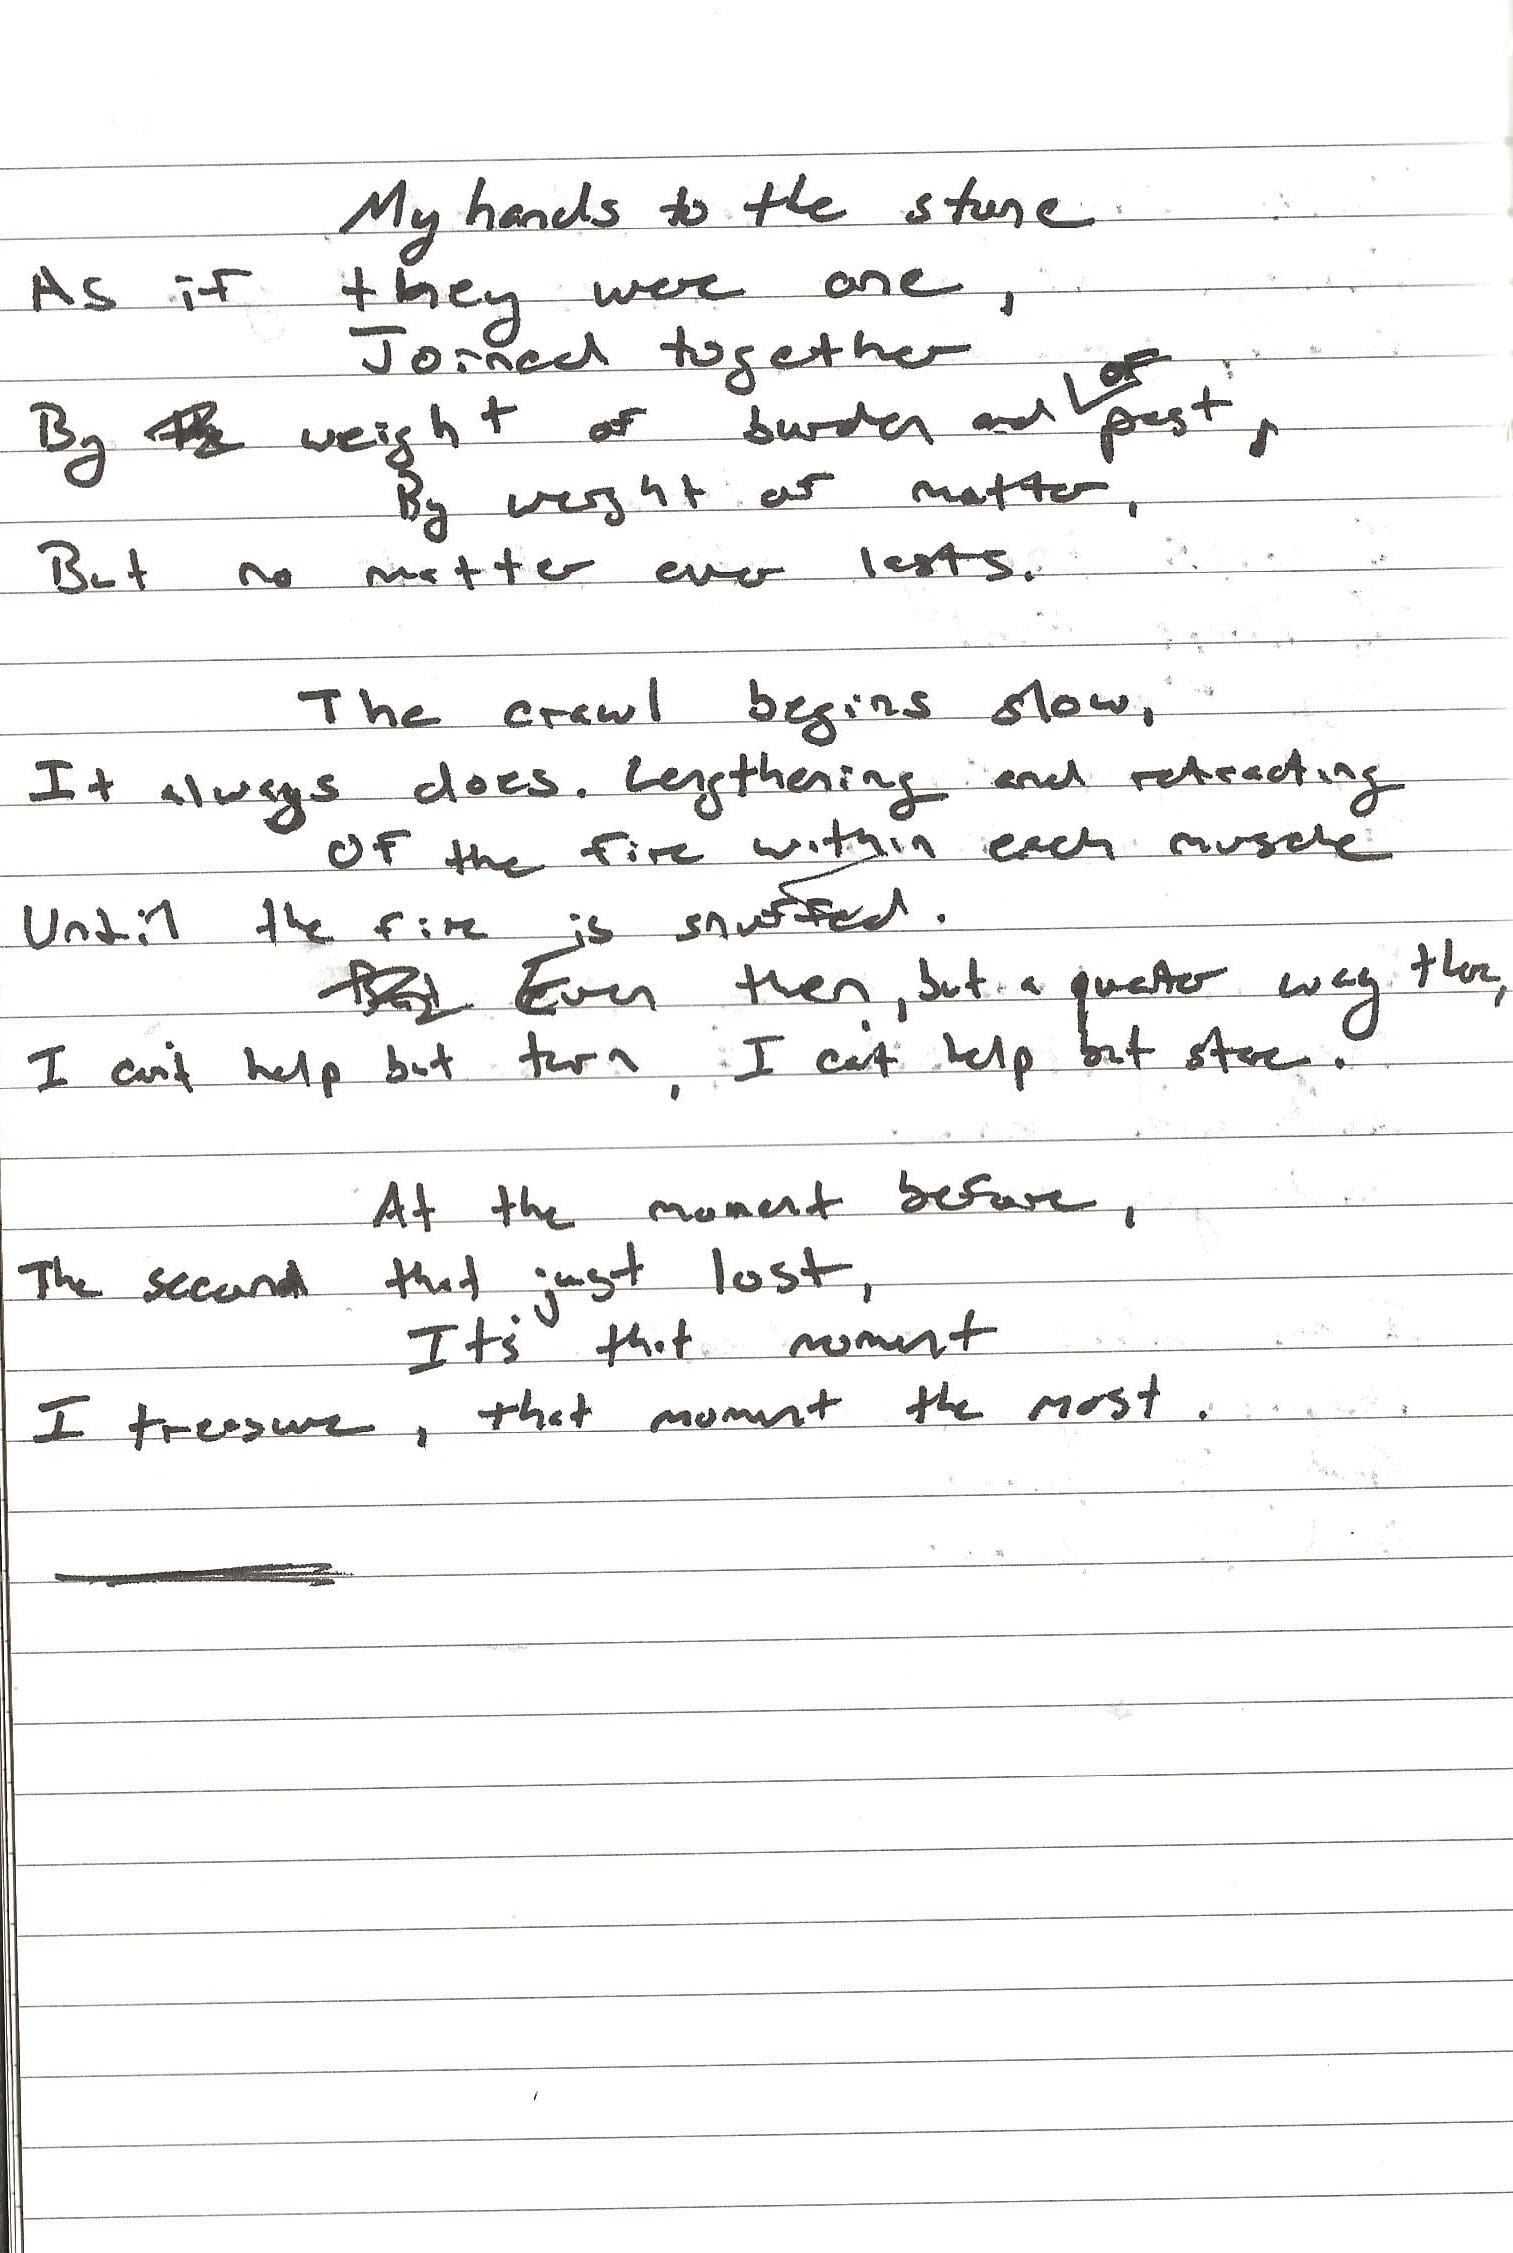 My hands to the stone
As if they were one,
Joined together
By weight of burden and of past,
By weight of matter,
But no matter ever lasts.
The crawl begins slow,
It always does. Lengthening and retracting
Of the fire within each muscle
Until the fire is snuffed.
Even then, but a quarter way there,
I can't help but turn, I can't help but stare.
At the moment before,
The second that just lost,
It's that moment
I treasure, that moment the most.